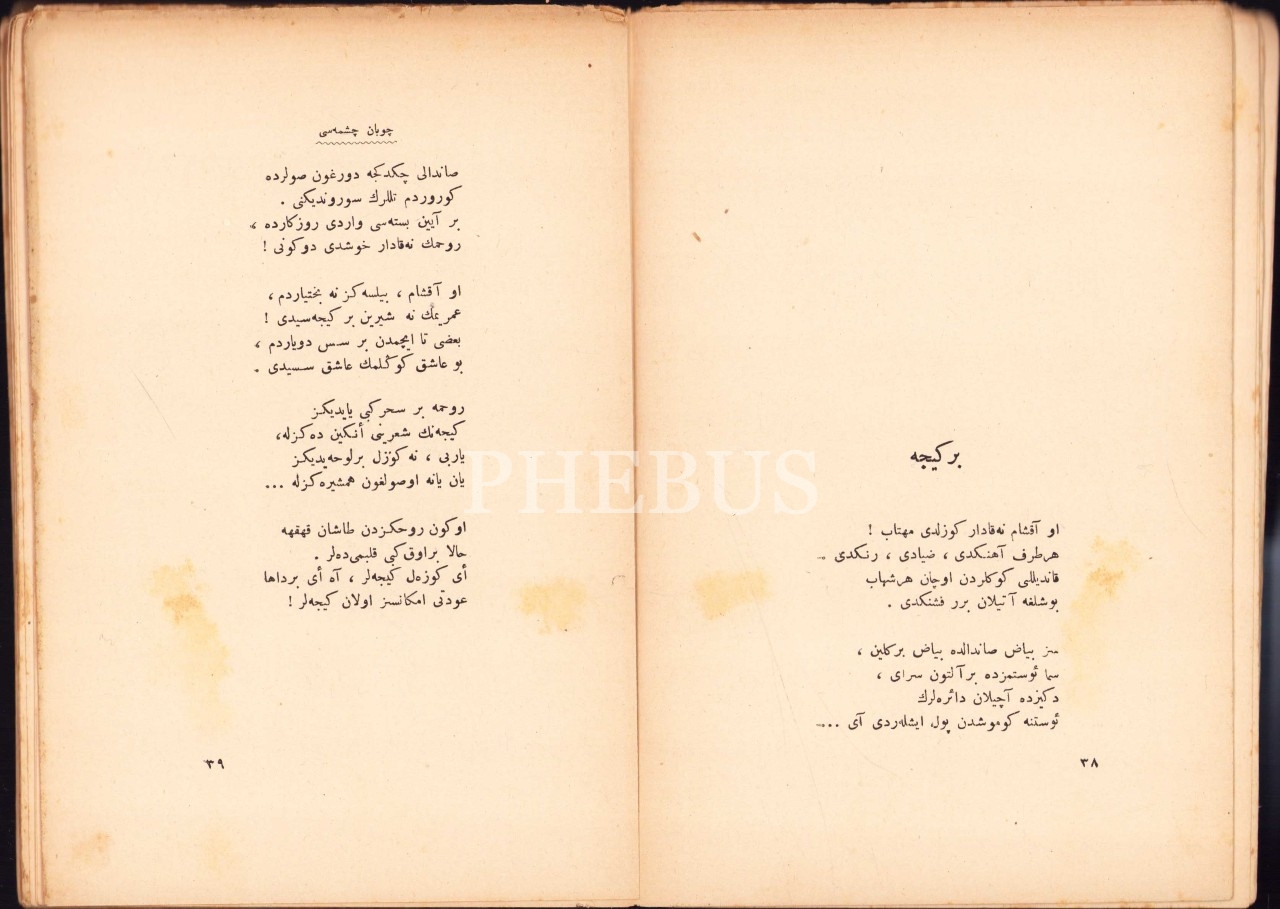 بر كیجه
او آقشام نه‌قادار كوزلدی مهتاب !
هرطرف آهنكدی ، ضیادی ، رنكدی .
قاندیللی كوكلردن اوچان هرشهاب
بوشلغه آتیلان برر فشنكدی .
سز بیاض صاندالده بیاض بركلین ،
سما ئوستمزده برآلتون سرای ،
دكیزده آچیلان دائره‌لرك
ئوستنه كوموشدن پول ایشله‌ردی آی ...
٣٨
چوبان چشمه‌سی
صاندالی چكدكجه دورغون صولرده
كوروردم تللرك سوروندیكنی .
بر آیین بسته‌سی واردی روزكارده ،
روحمك نه‌قادار خوشدی دوكونی !
او آقشام ، بیلسه‌كز نه بختیاردم ،
عمریمڭ نه شیرین بر كیجه‌سیدی !
بعضی تا ایچمدن بر سس دویاردم ،
بو عاشق كوڭلمك عاشق سسیدی .
روحمه بر سحركبی یایدیكز
كیجه‌نك شعرینی أنكین ده‌كزله،
یاربی ، نه كوزل برلوحه‌یدیكز
یان یانه اوصولغون همشیره‌كزله ...
اوكون روحكزدن طاشان قهقهه
حالا براوق‌كبی قلبمی‌ده‌لر .
أی كوزه‌ل كیجه‌لر ، آه أی برداها
عودتی امكانسز اولان كیجه‌لر !
٣٩
PHEBUS